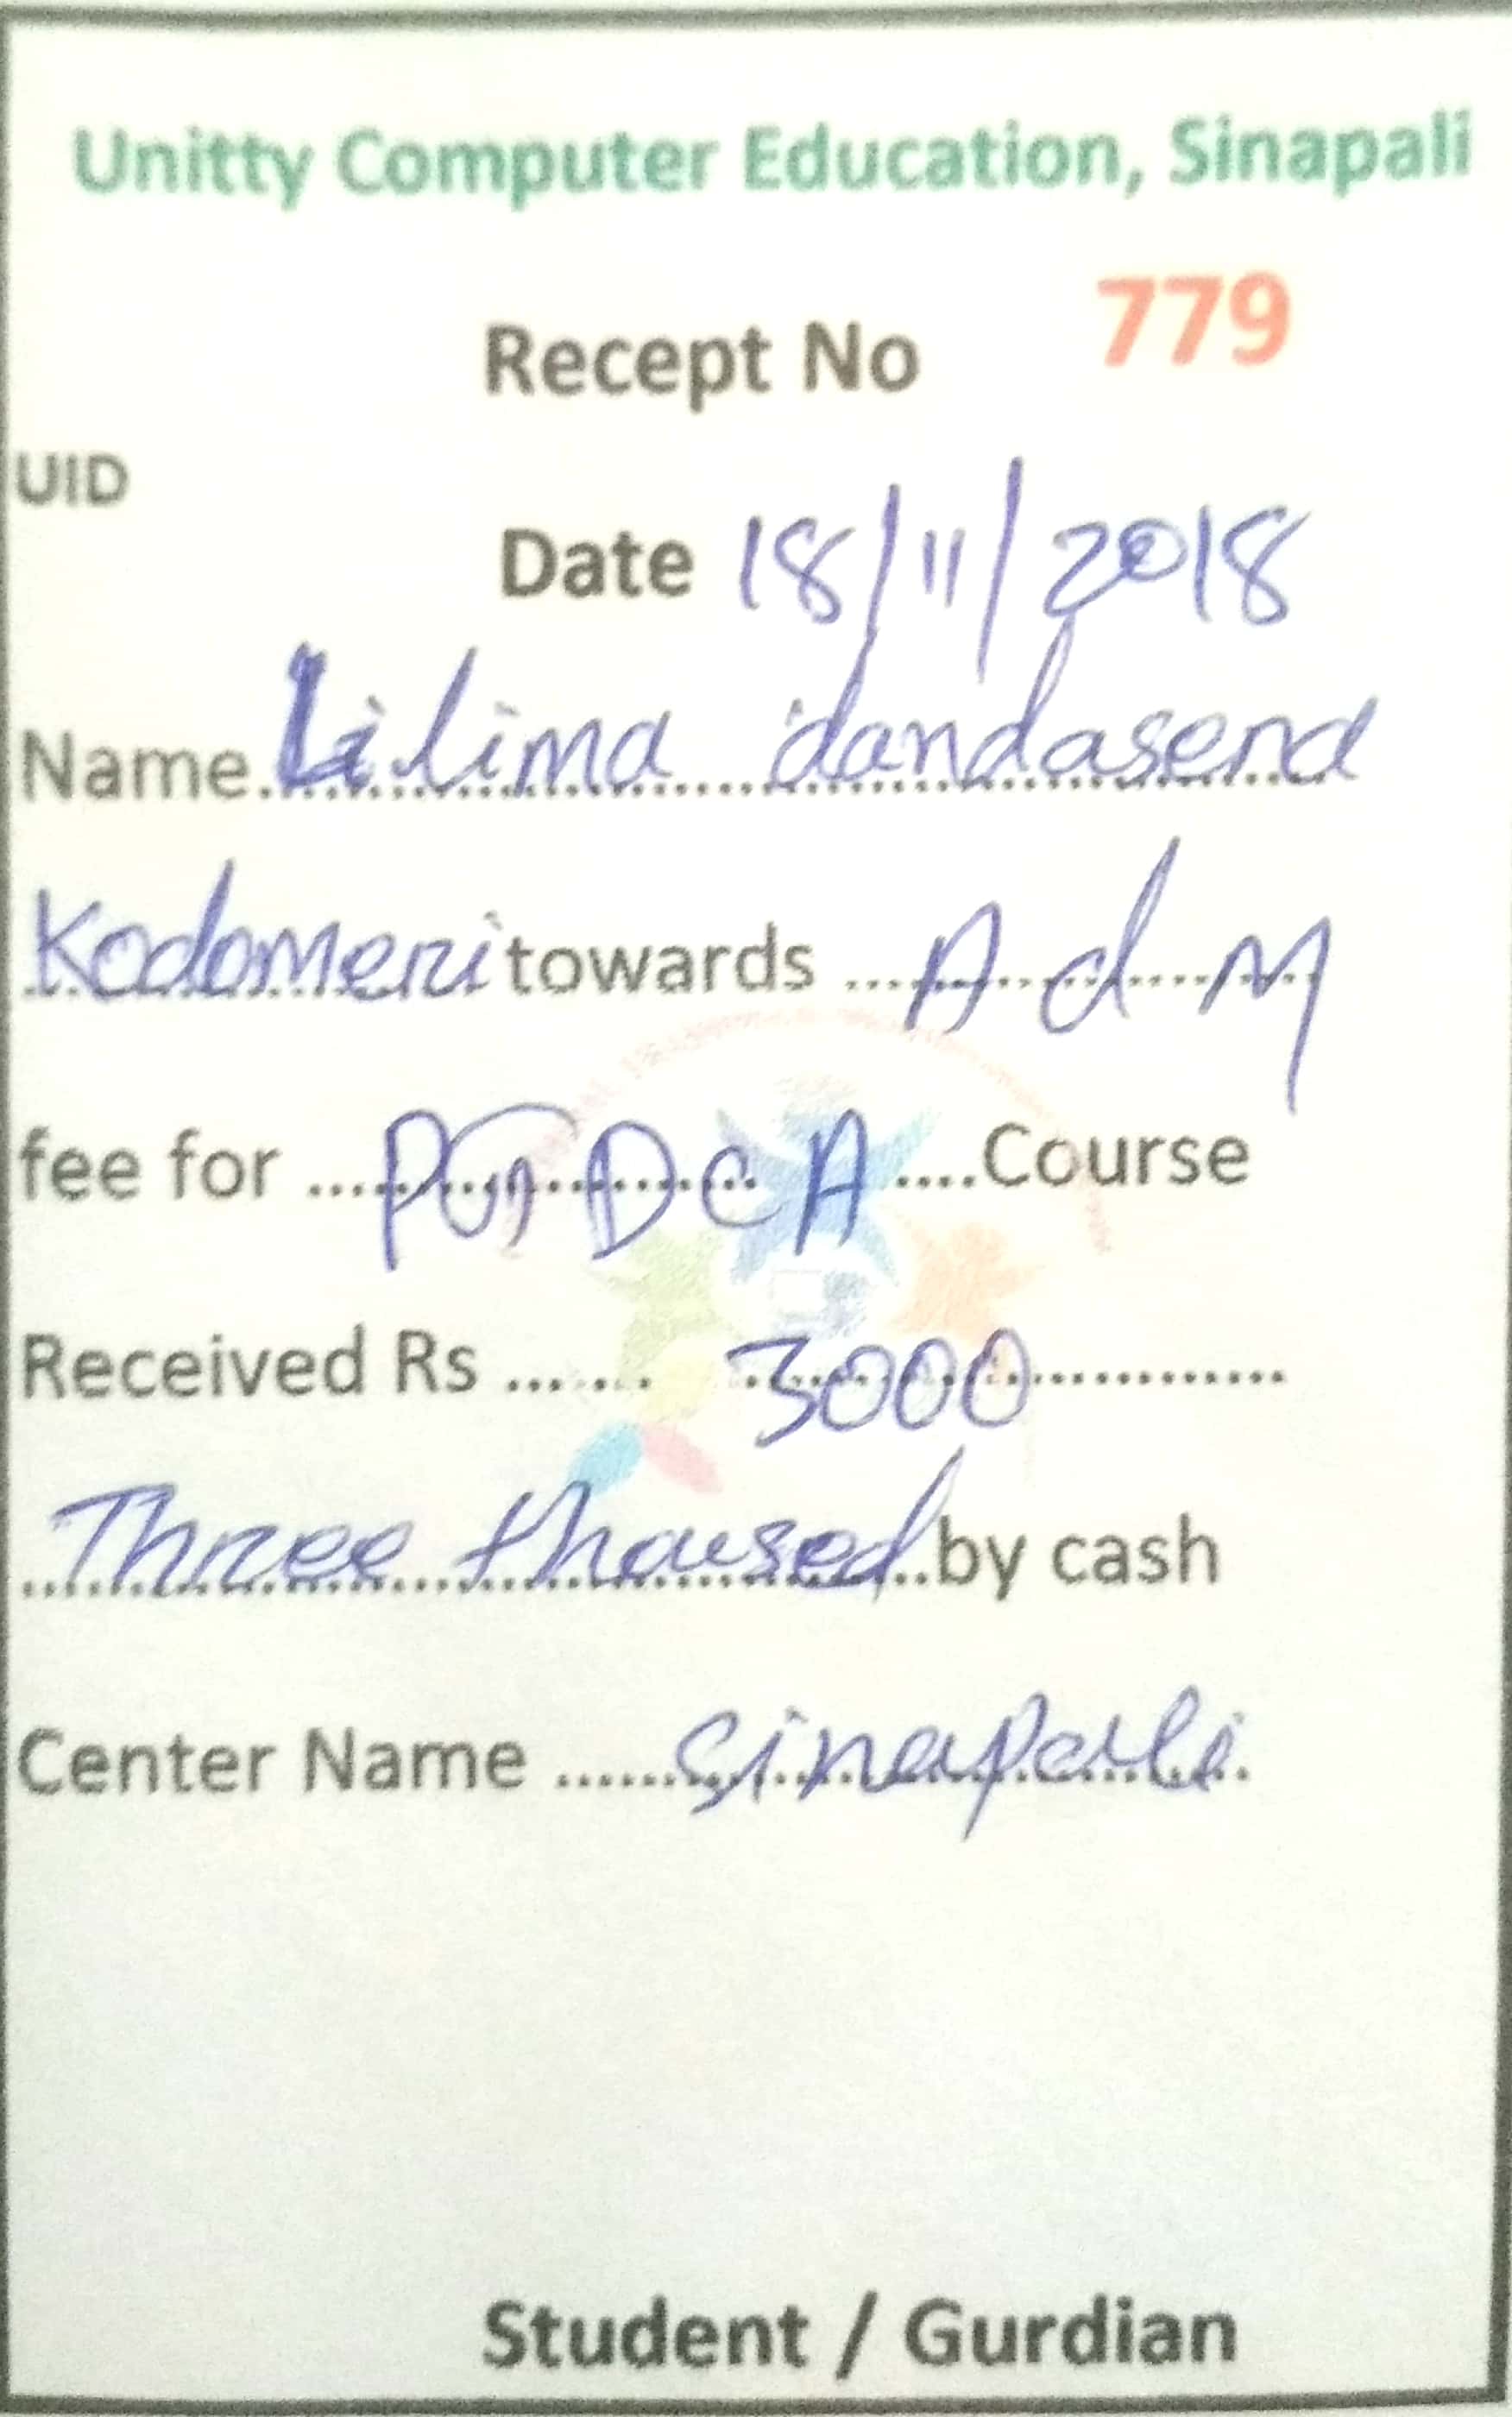 Unitty Computer Education, Sinapali
Recept No 779
UID
Date 18/11/2018
Name Lilima dandasena
Kodomeri towards Adm
fee for PGDCA Course
Received Rs 3000
Three thoused by cash
Center Name Sinapali
Student / Gurdian